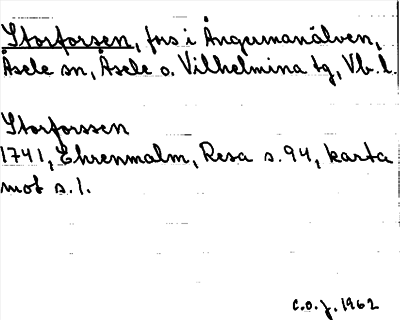 Storforsen, fors i Ångermanälven,
Åsele sn, Åsele o. Vilhelmina tg, Vb. l.
Storforssen
1741, Ehrenmalm, Resa s. 94, karta
mot s. 1.
C.O.J. 1962